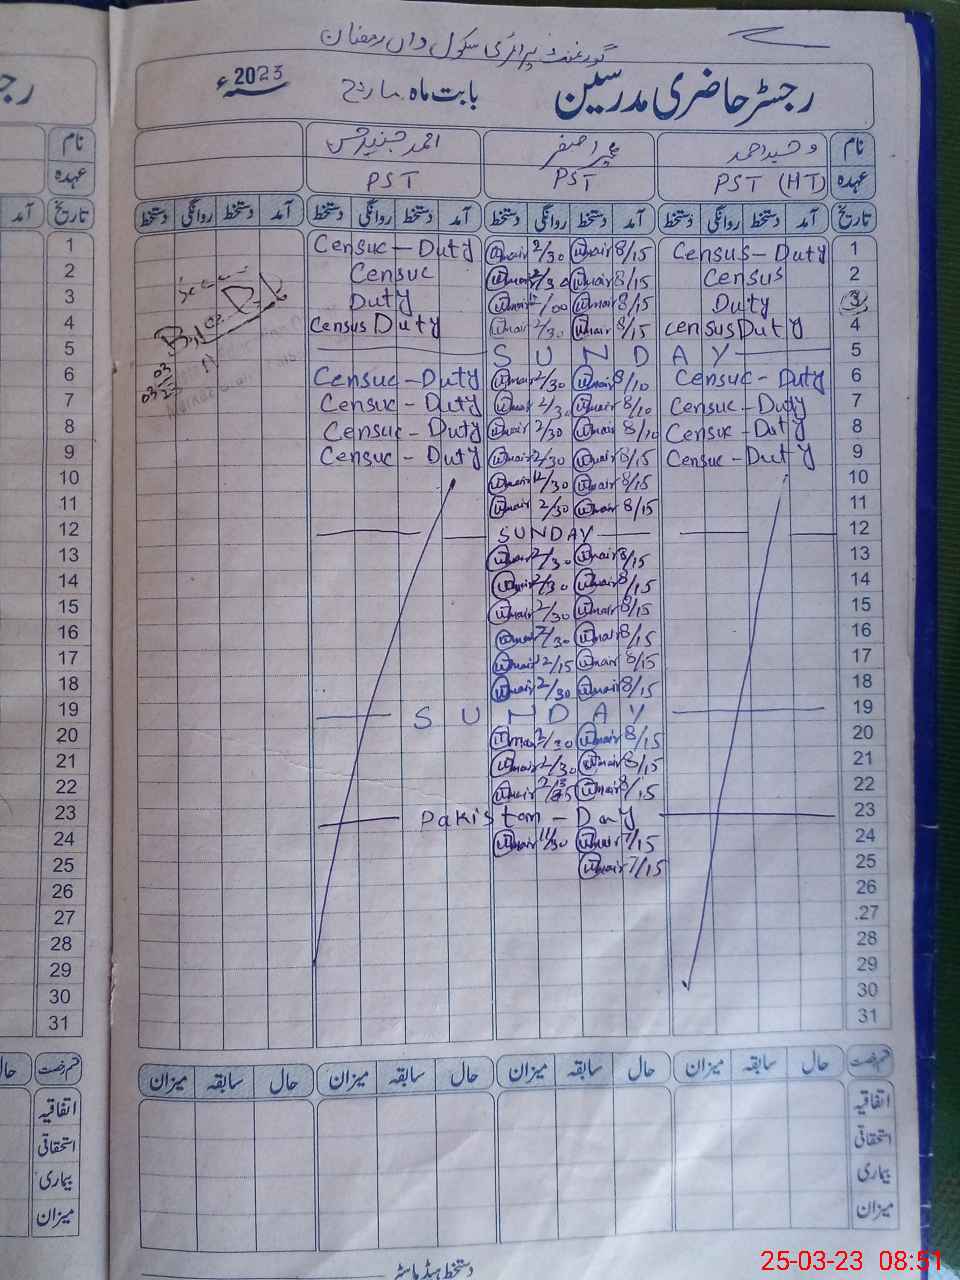 گورنمنٹ پرائمری سکول واں رمضان
رجسٹر حاضری مدرسین بابت ماہ مارچ 2023ء
نام احمد جنید
عہدہ PST (HT) PST PST
تاریخ آمد دستخط روانگی دستخط آمد دستخط روانگی دستخط آمد دستخط روانگی دستخط آمد دستخط روانگی دستخط
1 Census - Duty Umair 8/15 Umair 2/30 Censuc - Duty
2 Census Umair 8/15 Umair 2/30 Censuc
3 Duty Umair 8/15 Umair /00 Duty
4 Census Duty Umair 8/15 Umair 2/30 Census Duty
5 SUNDAY
6 Censuc - Duty Umair 8/10 Umair 2/30 Censuc - Duty
7 Censuc - Duty Umair 8/10 Umair 2/30 Censuc - Duty
8 Censuc - Duty Umair 8/10 Umair 2/30 Censuc - Duty
9 Censuc - Duty Umair 8/15 Umair 2/30 Censuc - Duty
10 Umair 8/15 Umair 12/30
11 Umair 8/15 Umair 2/30
12 SUNDAY
13 Umair 8/15 Umair 2/30
14 Umair 8/15 Umair 2/30
15 Umair 8/15 Umair 2/30
16 Umair 8/15 Umair /30
17 Umair 8/15 Umair 12/15
18 Umair 8/15 Umair 2/30
19 SUNDAY
20 Umair 8/15 Umair 2/30
21 Umair 8/15 Umair 2/30
22 Umair 8/15 Umair
23 Pakistan - Day
24 Umair 7/15 Umair 11/30
25 Umair 7/15
26
27
28
29
30
31
قسم رخصت حال سابقہ میزان حال سابقہ میزان حال سابقہ میزان حال سابقہ میزان
اتفاقیہ
استحقاقی
بیماری
میزان
دستخط ہیڈ ماسٹر
25-03-23 08:51